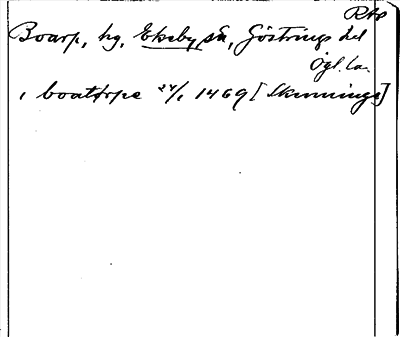 RAp
Boarp, hg, Ekeby sn, Göstrings hd
Ögl. la.
i boattorpe 24/1 1469 [Skenninge]